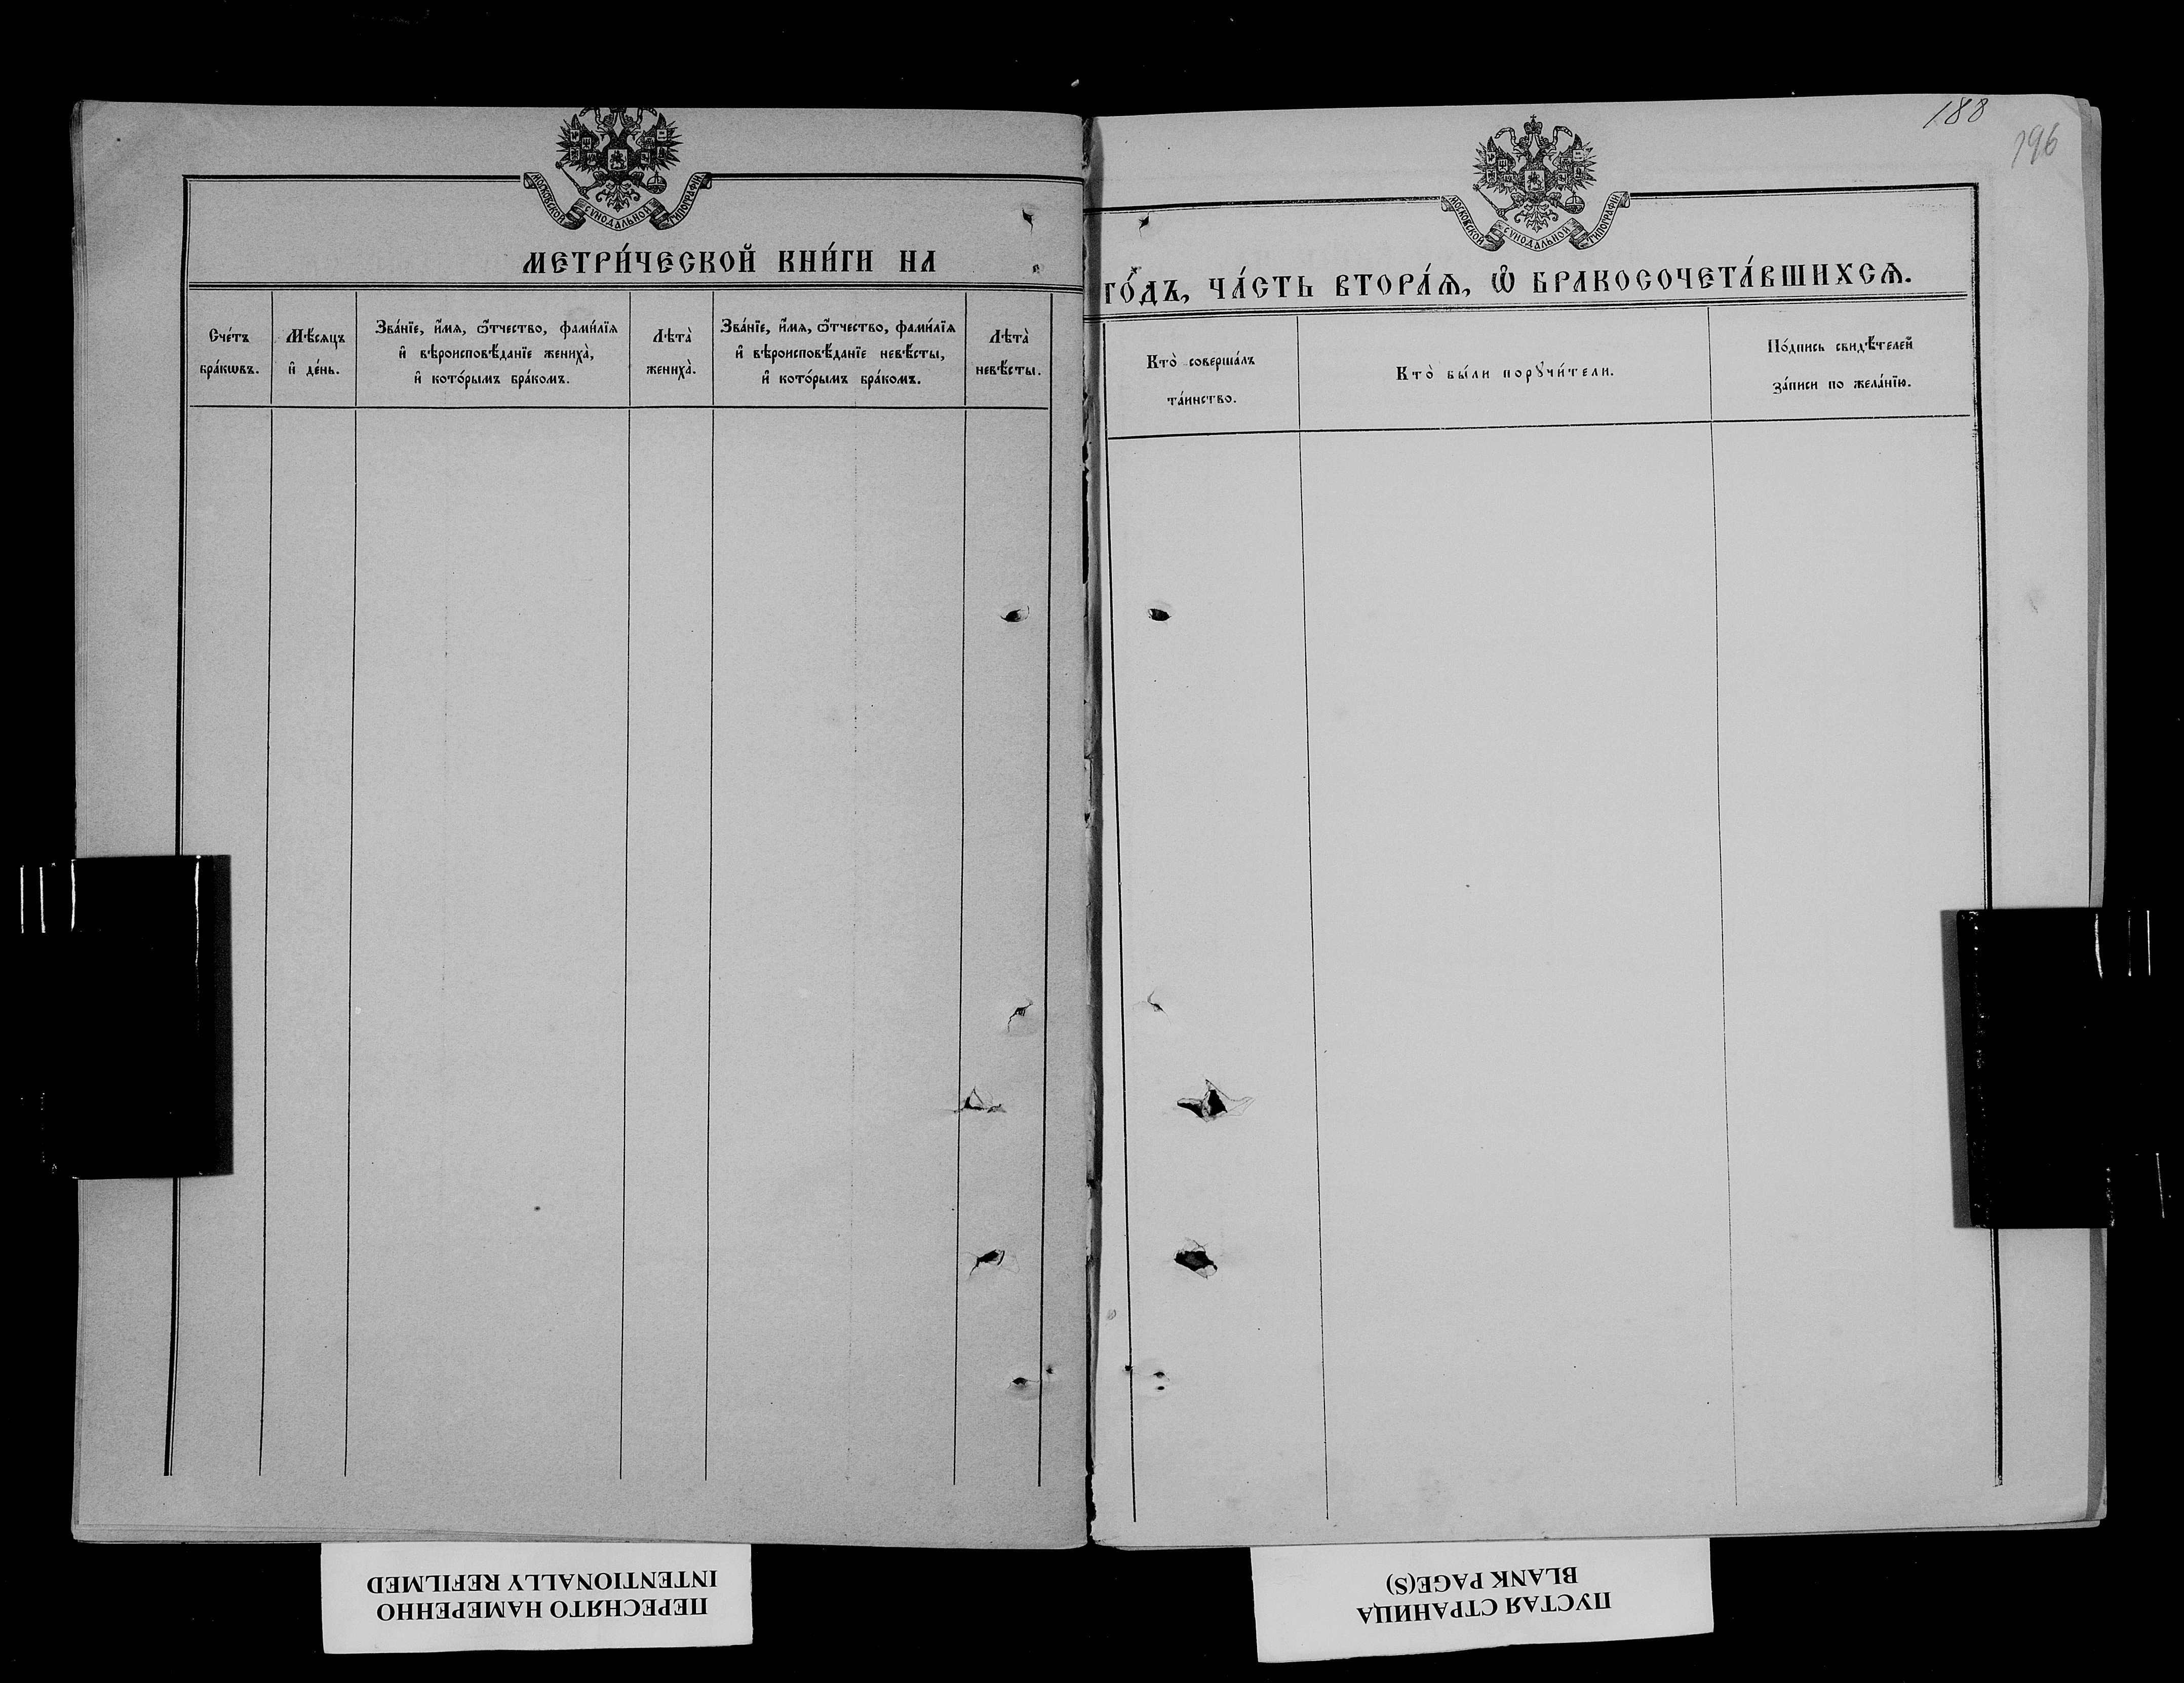 188
196
МОСКОВСКОЙ СѴНОДАЛЬНОЙ ТИПОГРАФІИ
МЕТРИ́ЧЕСКОЙ КНИ́ГИ НА
Сче́тъ
бра́кѡвъ.
Мѣ́сяцъ
и҆ де́нь.
Зва́нїе, и҆́мя, ѻ҆́тчество, фами́лїя
и҆ вѣроисповѣ́данїе жениха̀,
и҆ кото́рымъ бра́комъ.
Лѣта̀
жениха̀.
Зва́нїе, и҆́мя, ѻ҆́тчество, фами́лїя
и҆ вѣроисповѣ́данїе невѣ́сты,
и҆ кото́рымъ бра́комъ.
Лѣта̀
невѣ́сты.
МОСКОВСКОЙ СѴНОДАЛЬНОЙ ТИПОГРАФІИ
ГО́ДЪ, ЧА́СТЬ ВТОРА́Ѧ, Ѽ БРАКОСОЧЕТА́ВШИХСѦ.
Кто̀ соверша́лъ
та́инство.
Кто̀ бы́ли порꙋчи́тели.
По́дпись свидѣ́телей
за́писи по жела́нїю.
ПЕРЕСНЯТО НАМЕРЕННО
INTENTIONALLY REFILMED
ПУСТАЯ СТРАНИЦА
BLANK PAGE(S)